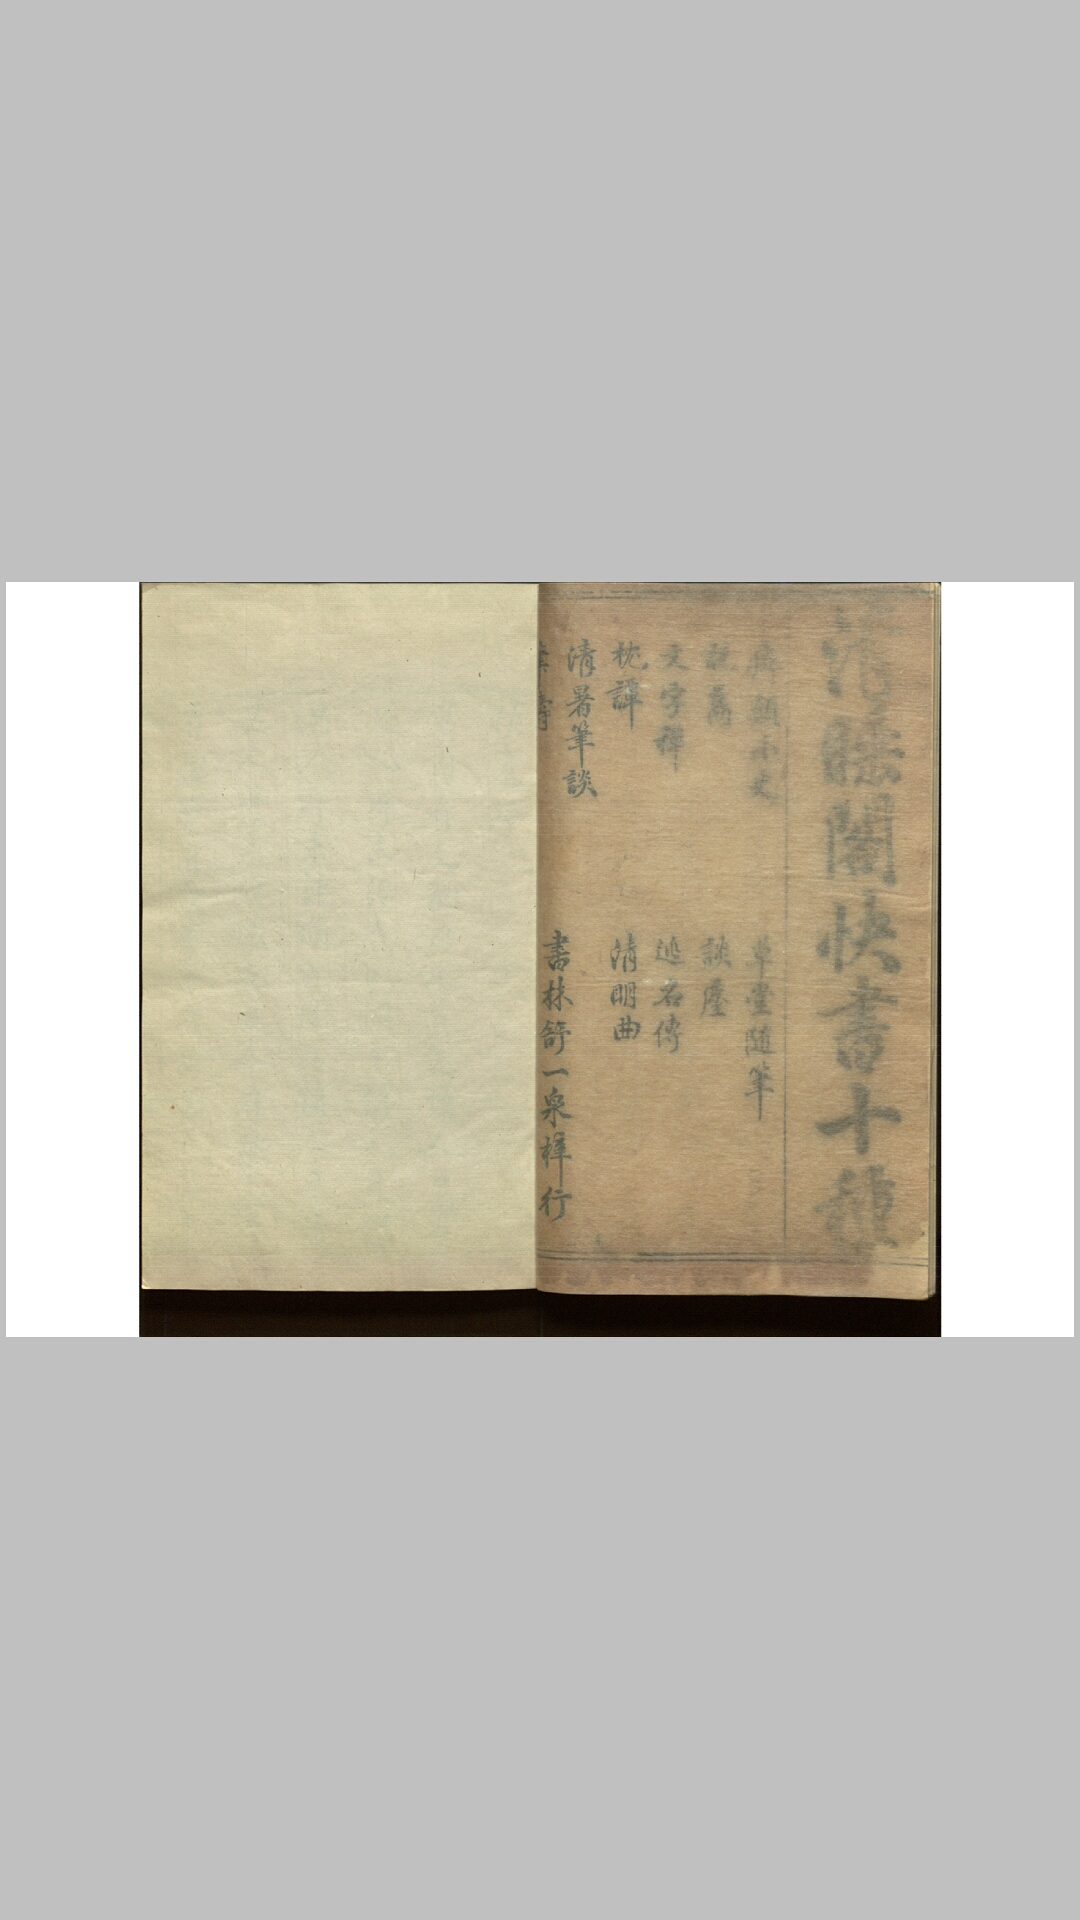 清睡閣快書十種
癖顛小史
草堂隨筆
談麈
文字禪
逃名傳
枕譚
清明曲
清暑筆談
書林舒一泉梓行